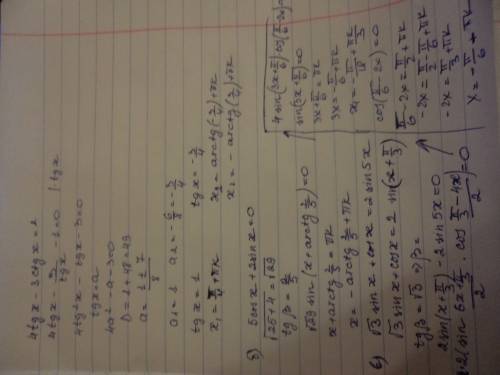 4tgx - 3ctgx = 1
4tgx - 3/tgx - 1 = 0 | tgx
4tg²x - tgx - 3 = 0
tgx = a
4a² - a - 3 = 0
D = 1 + 48 = 49
a = (1 ± 7)/8
a₁ = 1   a₂ = -6/8 = -3/4
tgx = 1   tgx = -3/4
x₁ = π/4 + πk   x₂ = arctg(-3/4) + πk
x₂ = -arctg(3/4) + πk
5cosx + 2sinx = 0
√25+4 = √29
tgβ = 5/2
√29 sin(x + arctg 5/2) = 0
x + arctg 5/2 = πk
x = -arctg 5/2 + πk
√3 sinx + cosx = 2sin5x
√3 sinx + cosx = 2 sin(x + π/3)
tgβ = √3 ⇒ β =
2sin(x + π/3) - 2sin5x = 0
4 sin(3x + π/6) cos(π/6 - 2x) = 0
sin(3x + π/6) = 0
3x + π/6 = πk
3x = -π/6 + πk
x₁ = -π/18 + πk/3
cos(π/6 - 2x) = 0
π/6 - 2x = π/2 + πk
-2x = π/2 - π/6 + πk
-2x = π/3 + πk
x = -π/6 + πk